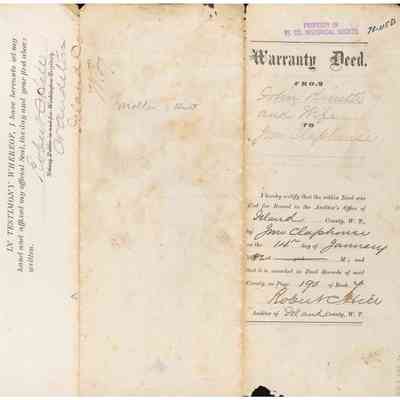 IN TESTIMONY WHEREOF, I have hereunto set my
hand and affixed my official Seal, the day and year first above
written.
Robert C Hill
Notary Public in and for Washington Territory
Island Co
PROPERTY OF
IS. CO. HISTORICAL SOCIETY
Warranty Deed.
FROM
John
and Wife
TO
Jno Claphouse
I hereby certify that the within Deed was
filed for Record in the Auditor's Office of
Island County, W. T.,
by Jno Claphouse
on the 14th day of January
M; and
that it is recorded in Deed Records of said
County, on Page 190 of Book
Robert C Hill
Auditor of Island County, W. T.